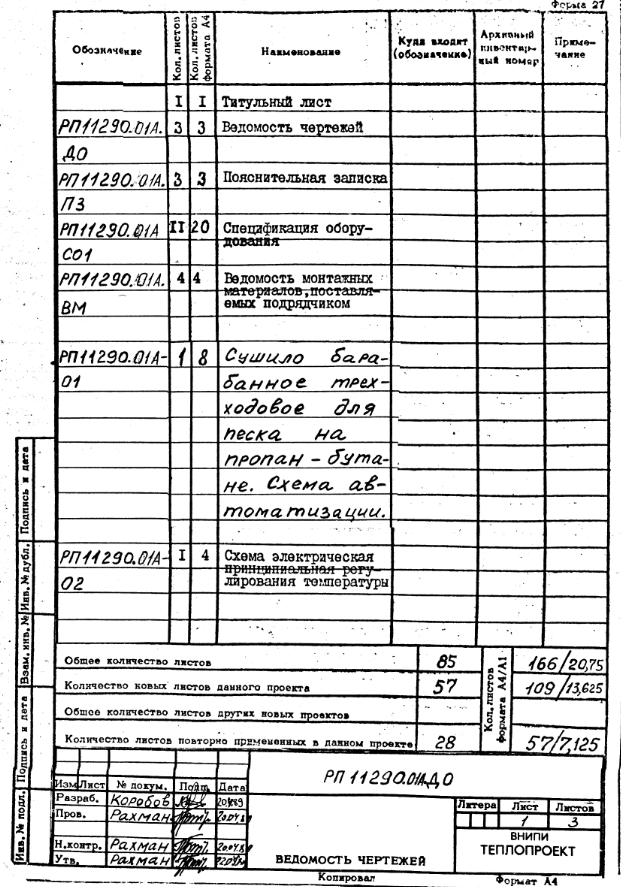 Форма 27
Обозначение Кол. листов Кол. листов формата А4 Наименование Куда входит (обозначение) Архивный инвентарный номер Примечание
I I Титульный лист
РП11290.01А. 3 3 Ведомость чертежей
ДО
РП11290.01А. 3 3 Пояснительная записка
ПЗ
РП11290.01А II 20 Спецификация обору-
СО1 дования
РП11290.01А. 4 4 Ведомость монтажных
материалов, поставля-
ВМ емых подрядчиком
РП11290.01А- 1 8 Сушило бара-
01 банное трех-
ходовое для
песка на
пропан-бута-
не. Схема ав-
томатизации.
РП11290.01А- I 4 Схема электрическая
принципиальная регу-
02 лирования температуры
Общее количество листов 85 Кол. листов формата А4/А1 166/20,75
Количество новых листов данного проекта 57 109/13,625
Общее количество листов других новых проектов
Количество листов повторно примененных в данном проекте 28 57/7,125
Инв. № подл. Подпись и дата Взам. инв. № Инв. № дубл. Подпись и дата
РП 11290.01А.ДО
Изм Лист № докум. Подп. Дата
Разраб. Коробов
Пров. Рахман
Н.контр. Рахман
Утв. Рахман
ВЕДОМОСТЬ ЧЕРТЕЖЕЙ
Литера Лист Листов
1 3
ВНИПИ
ТЕПЛОПРОЕКТ
Копировал Формат А4